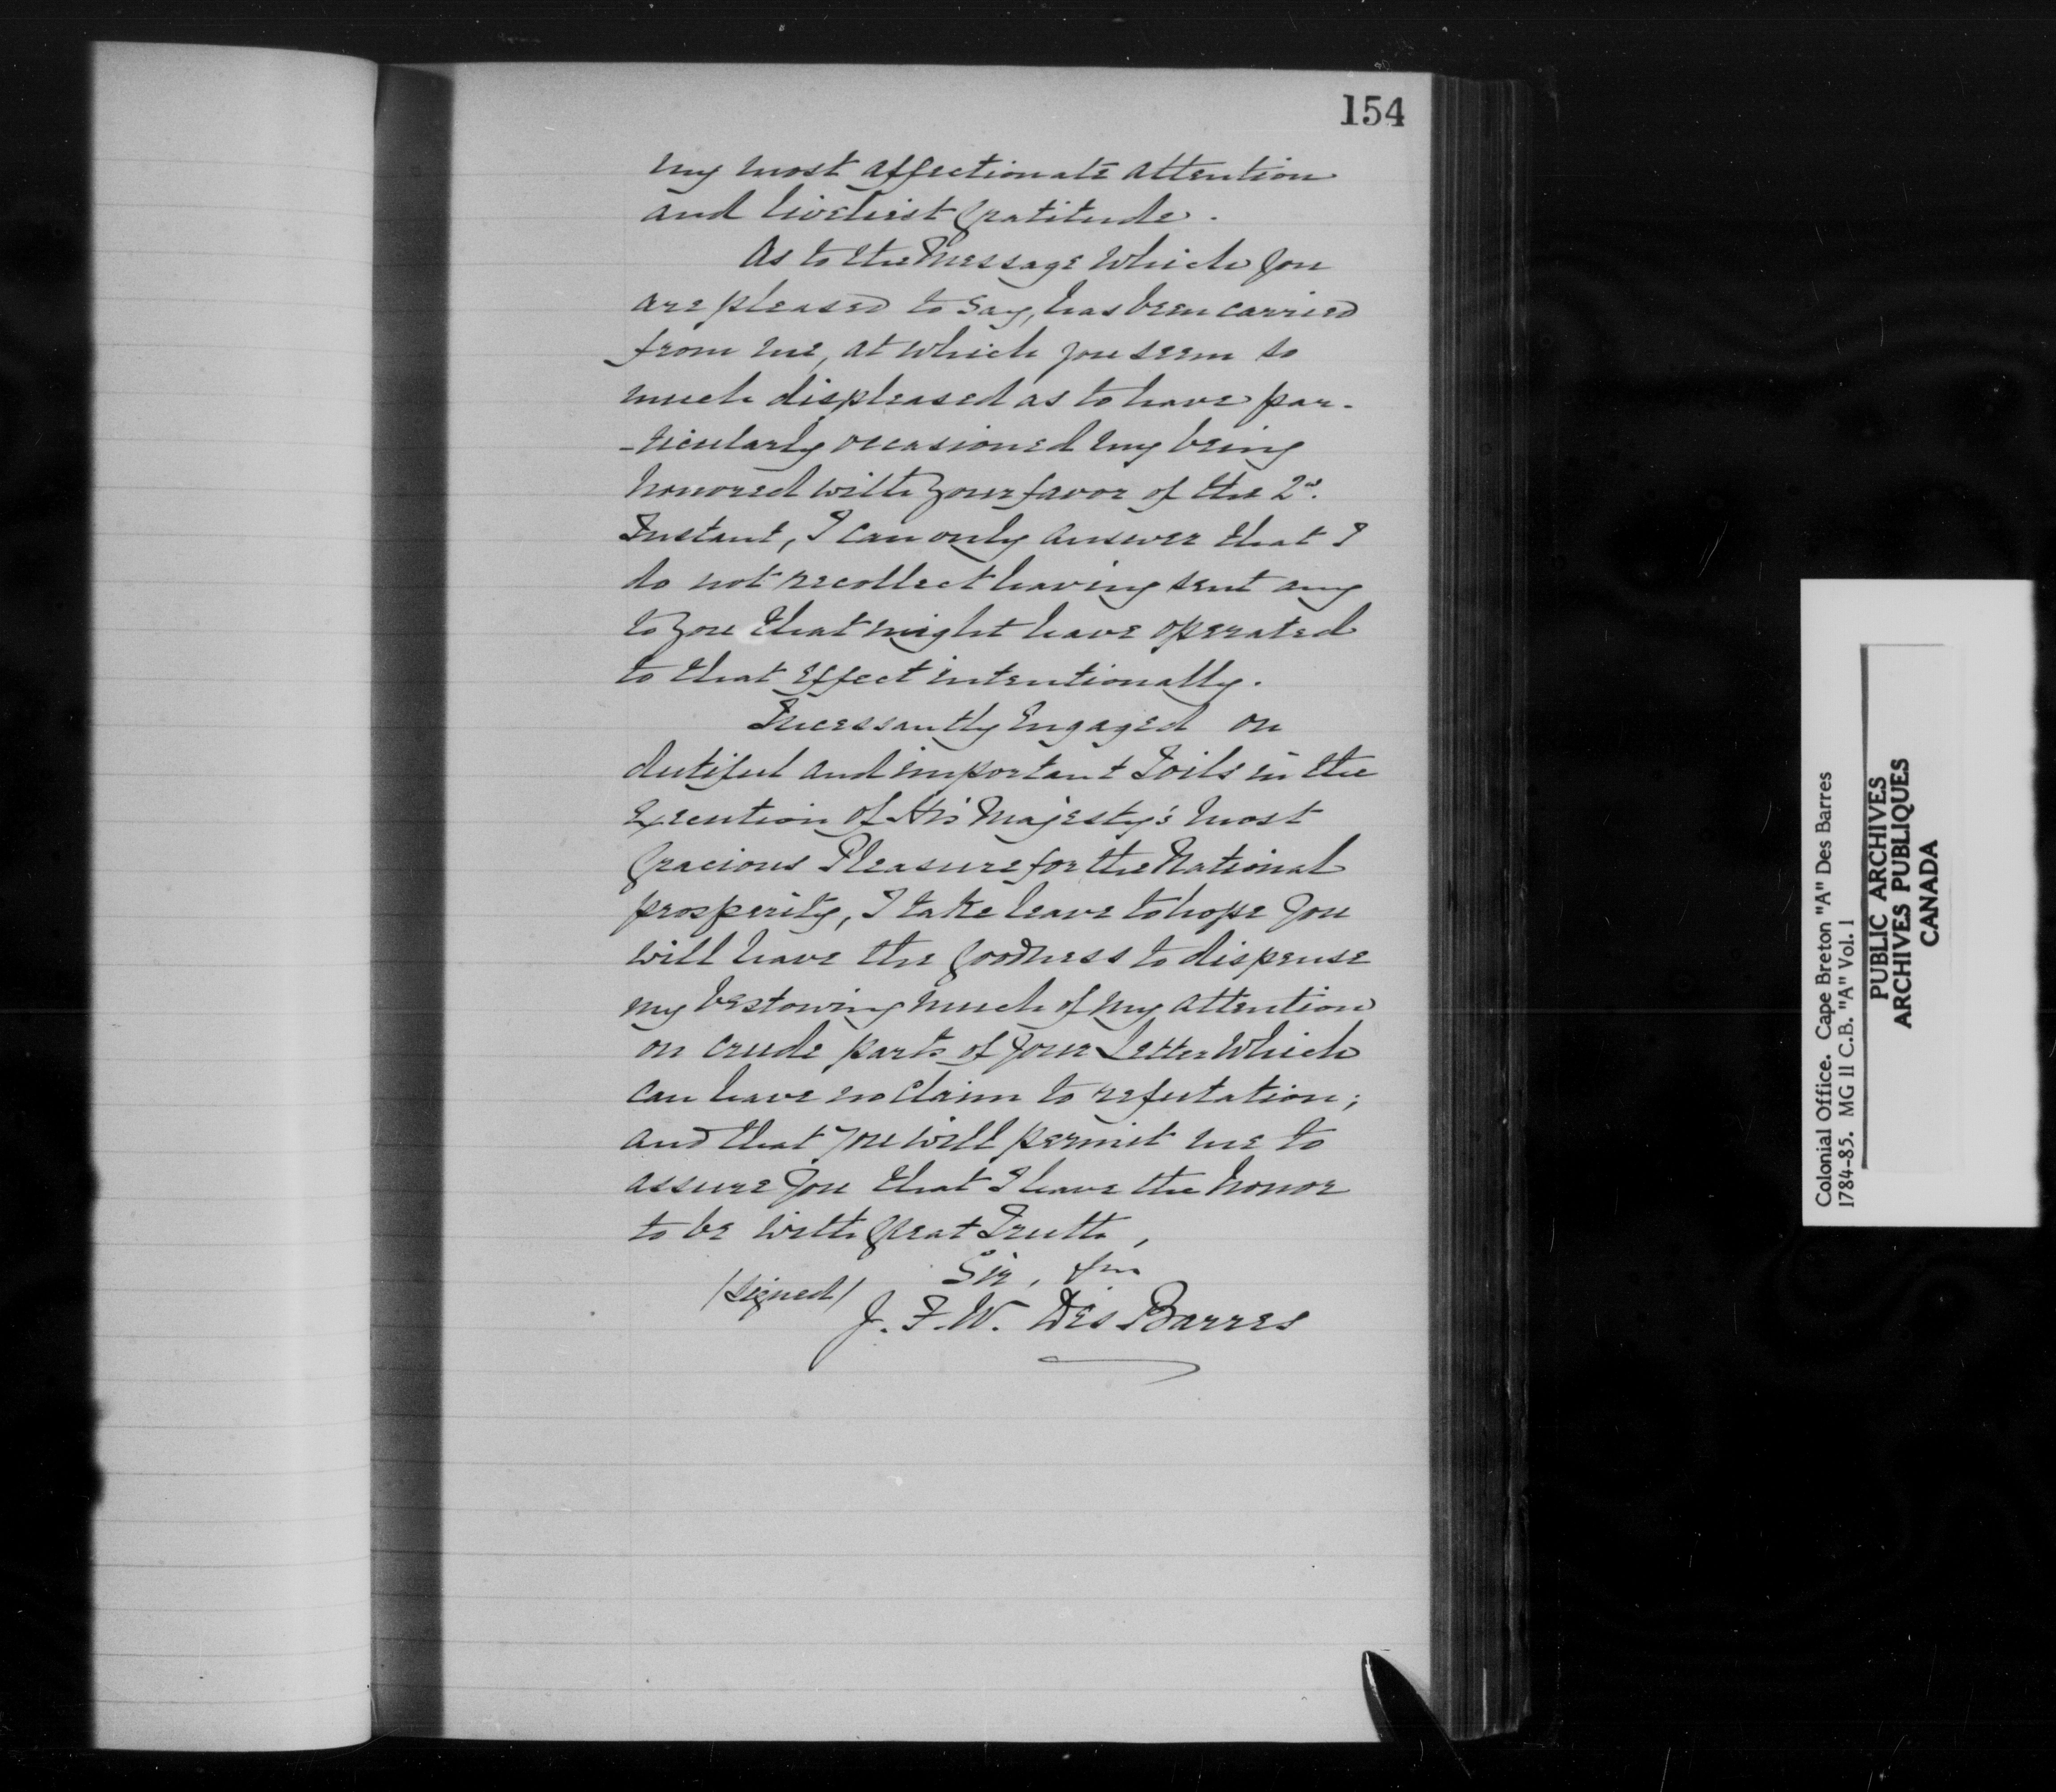 154
my most affectionate attention
and liveliest Gratitude.
As to the Message which you
are pleased to say, has been carried
from me, at which you seem so
much displeased as to have par-
-ticularly occasioned my being
honored with your favor of the 2d.
Instant, I can only answer that I
do not recollect having sent any
to you that might have operated
to that effect intentionally.
Incessantly Engaged on
dutiful and important Toils in the
Execution of His Majesty's most
Gracious Pleasure for the National
prosperity, I take leave to hope you
will have the goodness to dispense
my bestowing much of my attention
on crude parts of your Letter which
can have no claim to refutation;
and that you will permit me to
assure you that I have the honor
to be with great Truth,
Sir, &c
/signed/
J. F. W. Des Barres
Colonial Office. Cape Breton "A" Des Barres
1784-85. MG 11 C.B. "A" Vol. 1
PUBLIC ARCHIVES
ARCHIVES PUBLIQUES
CANADA